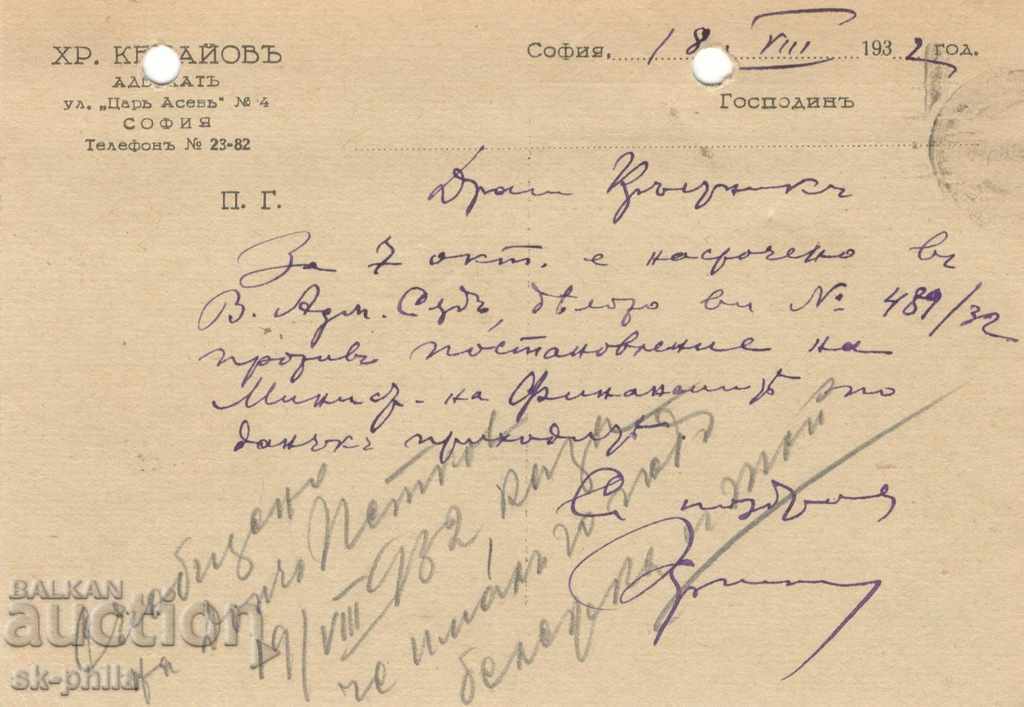 ХР. КЕ АЙОВЪ
АДВОКАТЪ
ул. „Царь Асень“ № 4
СОФИЯ
Телефонъ № 23-82
София, 18 VIII 1932 год.
Господинъ
П. Г.
Драги
За 7 окт. е насрочено въ
В. Адм. Съдъ, дѣлото ви № 489/32
противъ постановление на
Минист. на Финанситѣ по
данъкъ приходитѣ.
Съ поздрав
Съобщено
на Дончо Петков
19/VIII 932,
че
BALKAN
auction
sk-phila